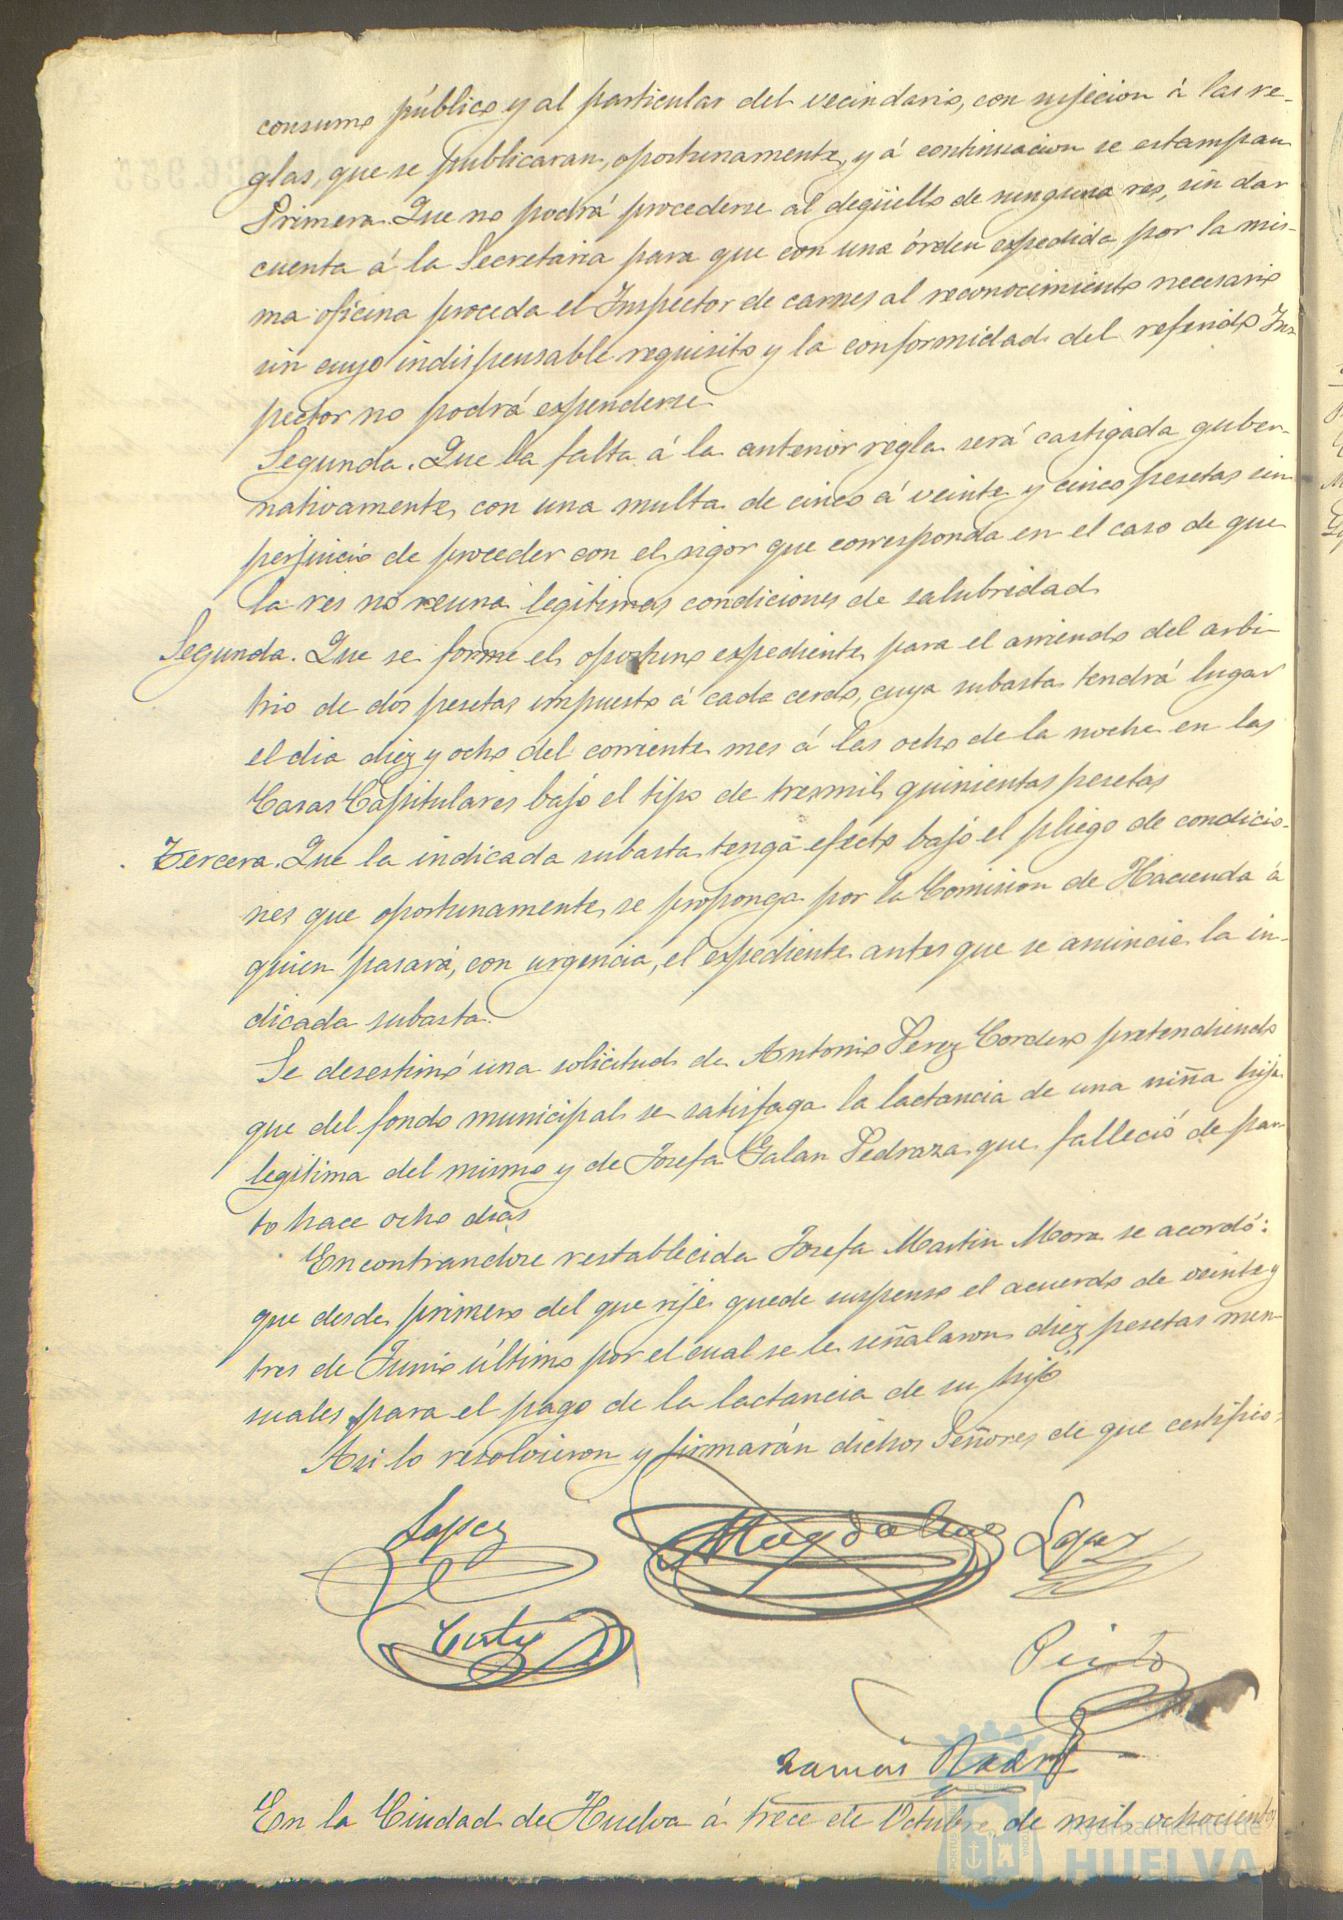 consumo público y al particular del vecindario, con sujecion á las re-
glas, que se publicaran, oportunamente, y á continuacion se estampan
Primera. Que no podrá procederse al degüello de ninguna res, sin dar
cuenta á la Secretaria para que con una órden expedida por la mis-
ma oficina proceda el Inspector de carnes al reconocimiento necesario
sin cuyo indispensable requisito y la conformidad del referido Ins
pector no podrá expenderse
Segunda. Que la falta á la anterior regla será castigada guber-
nativamente con una multa de cinco á veinte y cinco pesetas sin
perjuicio de proceder con el rigor que corresponda en el caso de que
la res no reuna legitimas condiciones de salubridad
Segunda. Que se forme el oportuno expediente para el arriendo del arbi-
trio de dos pesetas impuesto á cada cerdo, cuya subasta tendrá lugar
el dia diez y ocho del corriente mes á las ocho de la noche en las
Casas Capitulares bajo el tipo de tres mil quinientas pesetas
Tercera. Que la indicada subasta tenga efecto bajo el pliego de condicio-
nes que oportunamente se proponga por la Comision de Hacienda á
quien pasará, con urgencia, el expediente antes que se anuncie la in-
dicada subasta.
Se desestimó una solicitud de Antonio Perez Cordero pretendiendo
que del fondo municipal se satisfaga la lactancia de una niña hija
legitima del mismo y de Josefa Galan Pedraza que falleció de par-
to hace ocho dias
Encontrandose restablecida Josefa Martin Mora se acordó:
que desde primero del que rije quede suspenso el acuerdo de veinte y
tres de Junio último por el cual se le señalaron diez pesetas men-
suales para el pago de la lactancia de su hijo
Asi lo resolvieron y firmarán dichos Señores de que certifico.
Lopez
Magdaleno
Lopez
Pinto
En la Ciudad de Huelva á trece de Octubre de mil ochocientos
Ayuntamiento de
HUELVA